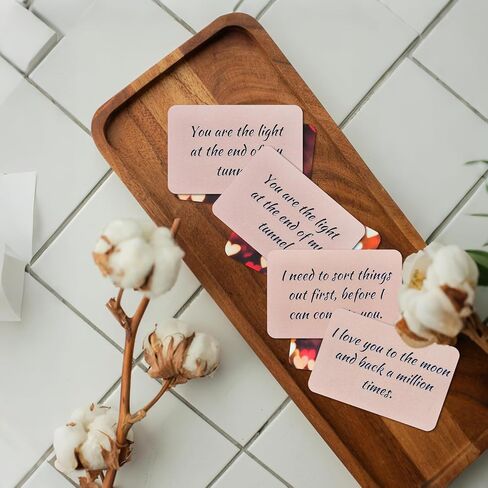 You are the light
at the end of my
You are the light
at the end of my
tunnel
I need to sort things
out first, before I
can you.
I love you to the moon
and back a million
times.